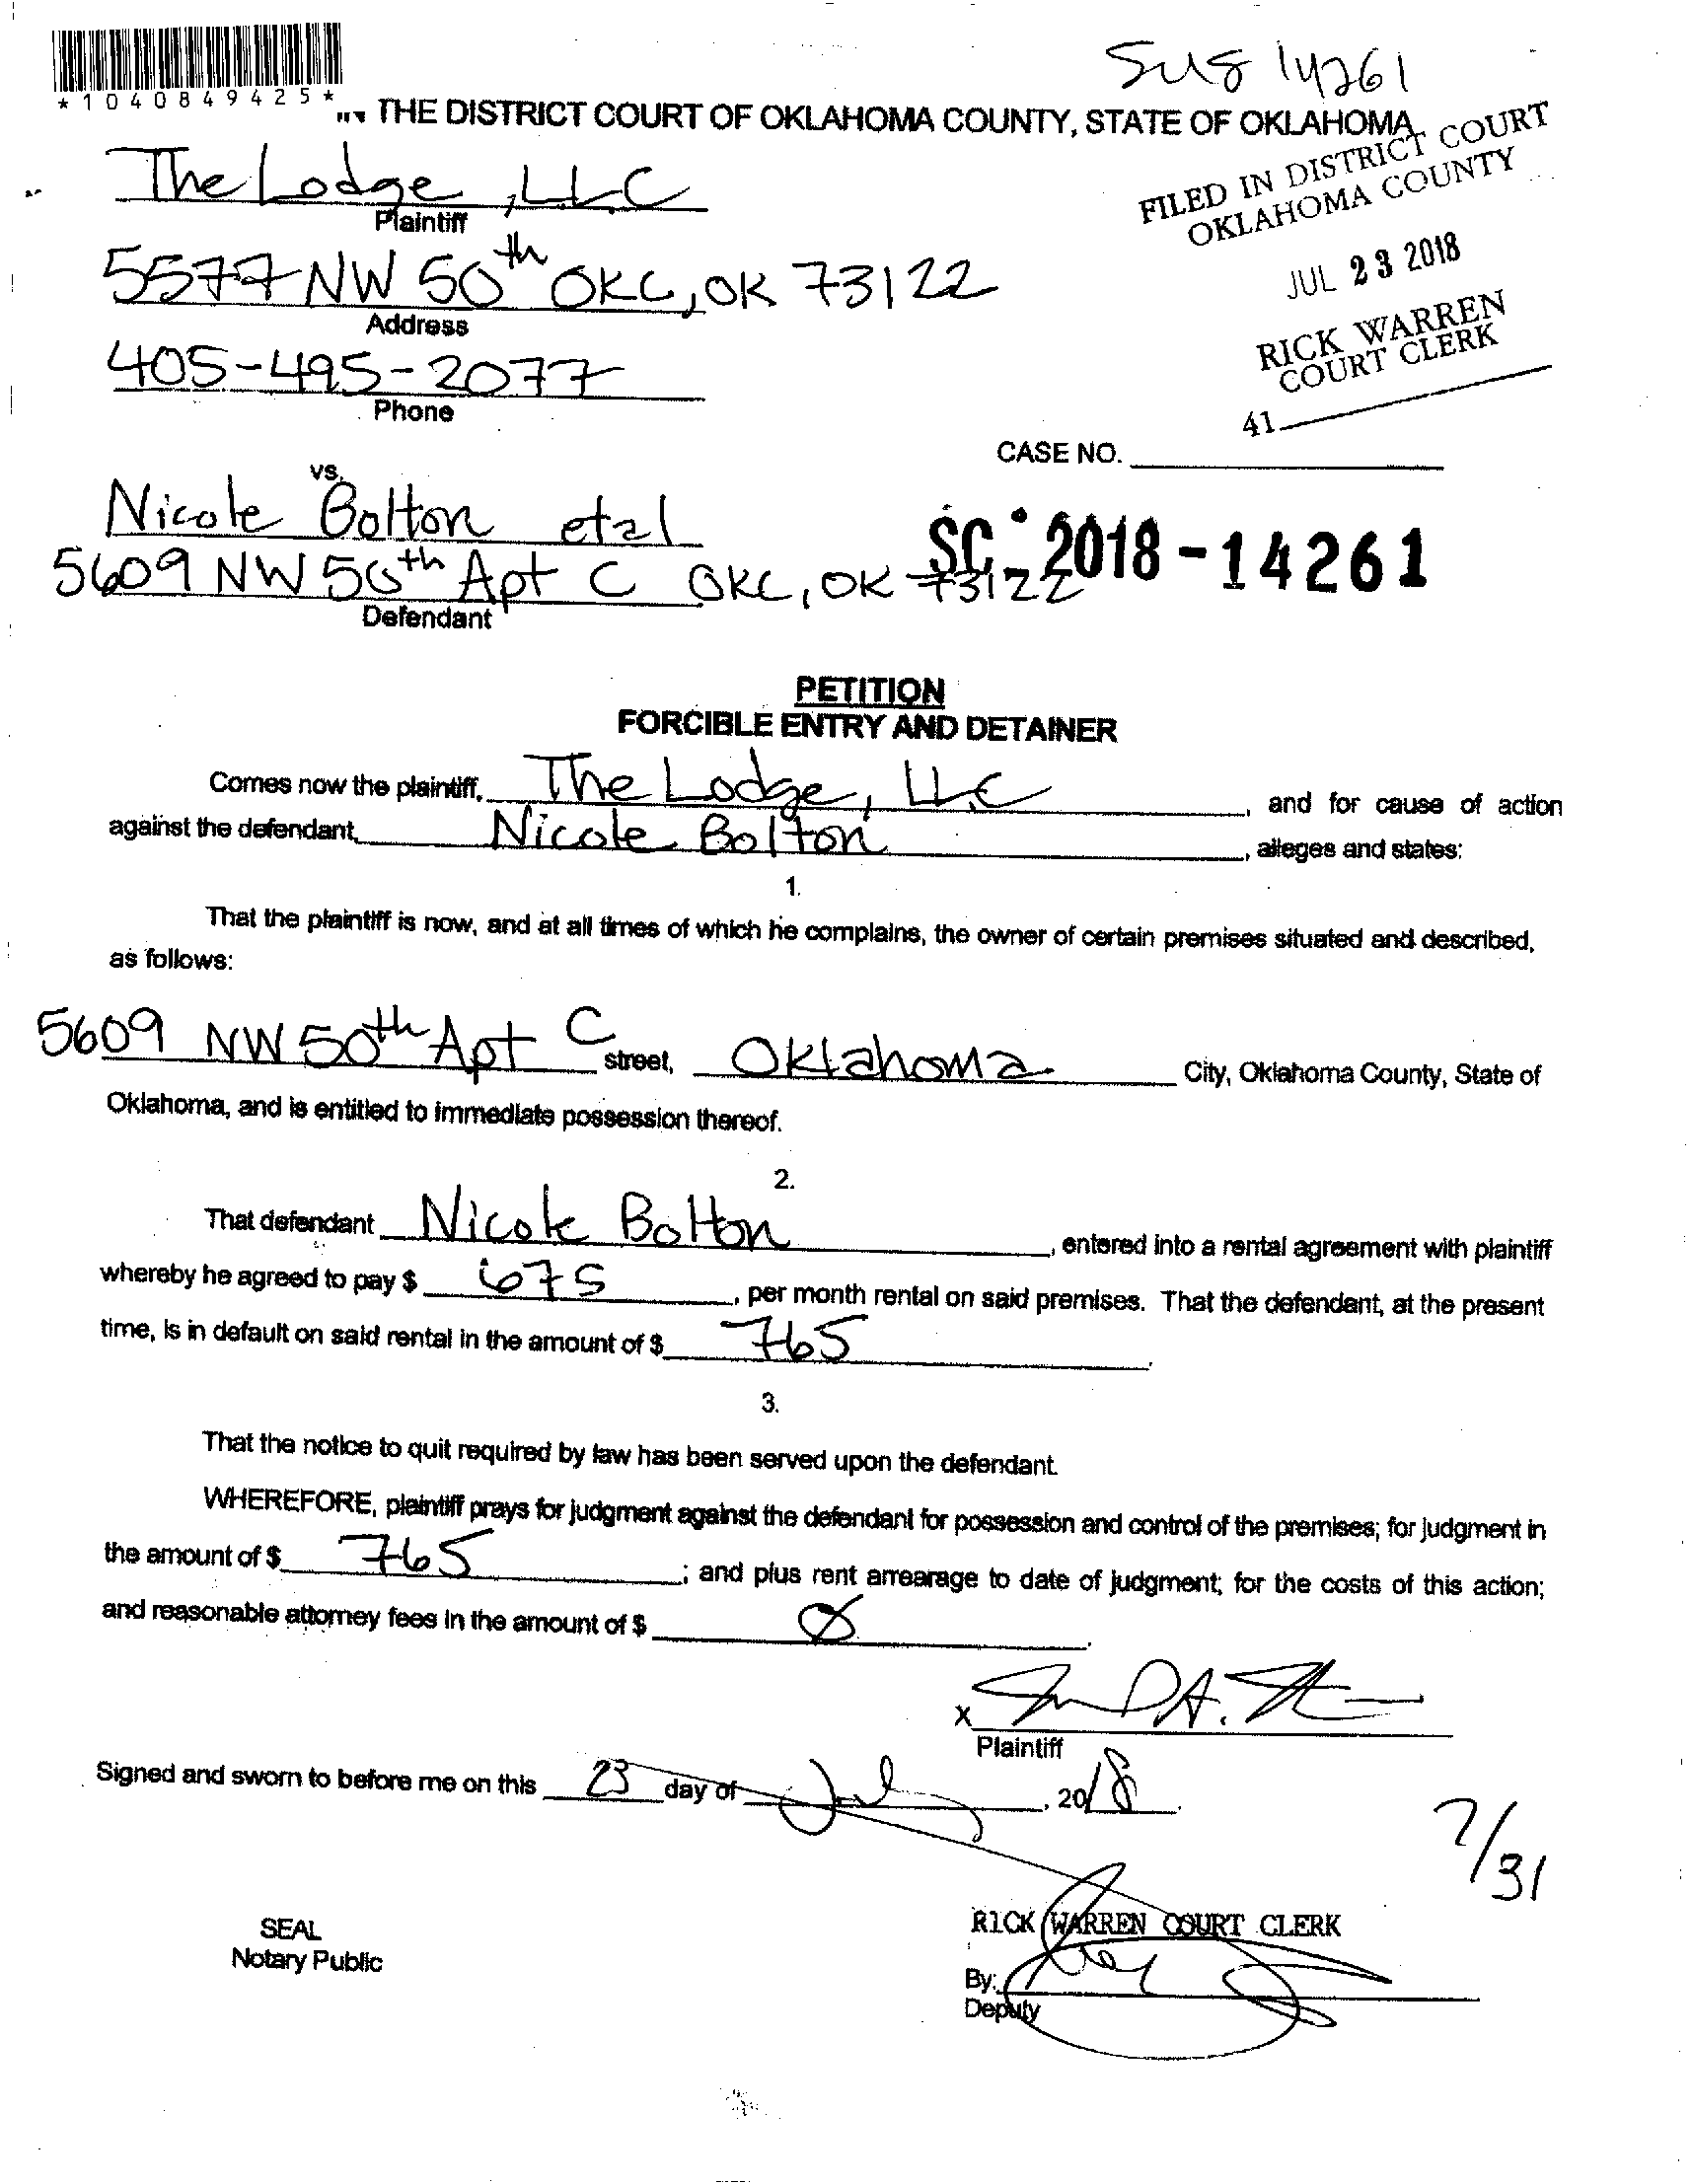 SUS 14261
*1040849425*
THE DISTRICT COURT OF OKLAHOMA COUNTY, STATE OF OKLAHOMA
FILED IN DISTRICT COURT
OKLAHOMA COUNTY
JUL 23 2018
RICK WARREN
COURT CLERK
41
The Lodge, LLC
Plaintiff
5577 NW 50th OKC, OK 73122
Address
405-495-2077
Phone
CASE NO.
vs.
Nicole Bolton etal
SC-2018-14261
5609 NW 50th Apt C OKC, OK 73122
Defendant
PETITION
FORCIBLE ENTRY AND DETAINER
Comes now the plaintiff, The Lodge, LLC, and for cause of action
against the defendant, Nicole Bolton, alleges and states:
1.
That the plaintiff is now, and at all times of which he complains, the owner of certain premises situated and described,
as follows:
5609 NW 50th Apt C street, Oklahoma City, Oklahoma County, State of
Oklahoma, and is entitled to immediate possession thereof.
2.
That defendant Nicole Bolton, entered into a rental agreement with plaintiff
whereby he agreed to pay $ 675, per month rental on said premises. That the defendant, at the present
time, is in default on said rental in the amount of $ 765.
3.
That the notice to quit required by law has been served upon the defendant.
WHEREFORE, plaintiff prays for judgment against the defendant for possession and control of the premises; for judgment in
the amount of $ 765; and plus rent arrearage to date of judgment; for the costs of this action;
and reasonable attorney fees in the amount of $ Ø.
X
Plaintiff
Signed and sworn to before me on this 23 day of July, 2018.
7/31
SEAL
Notary Public
RICK WARREN COURT CLERK
By:
Deputy